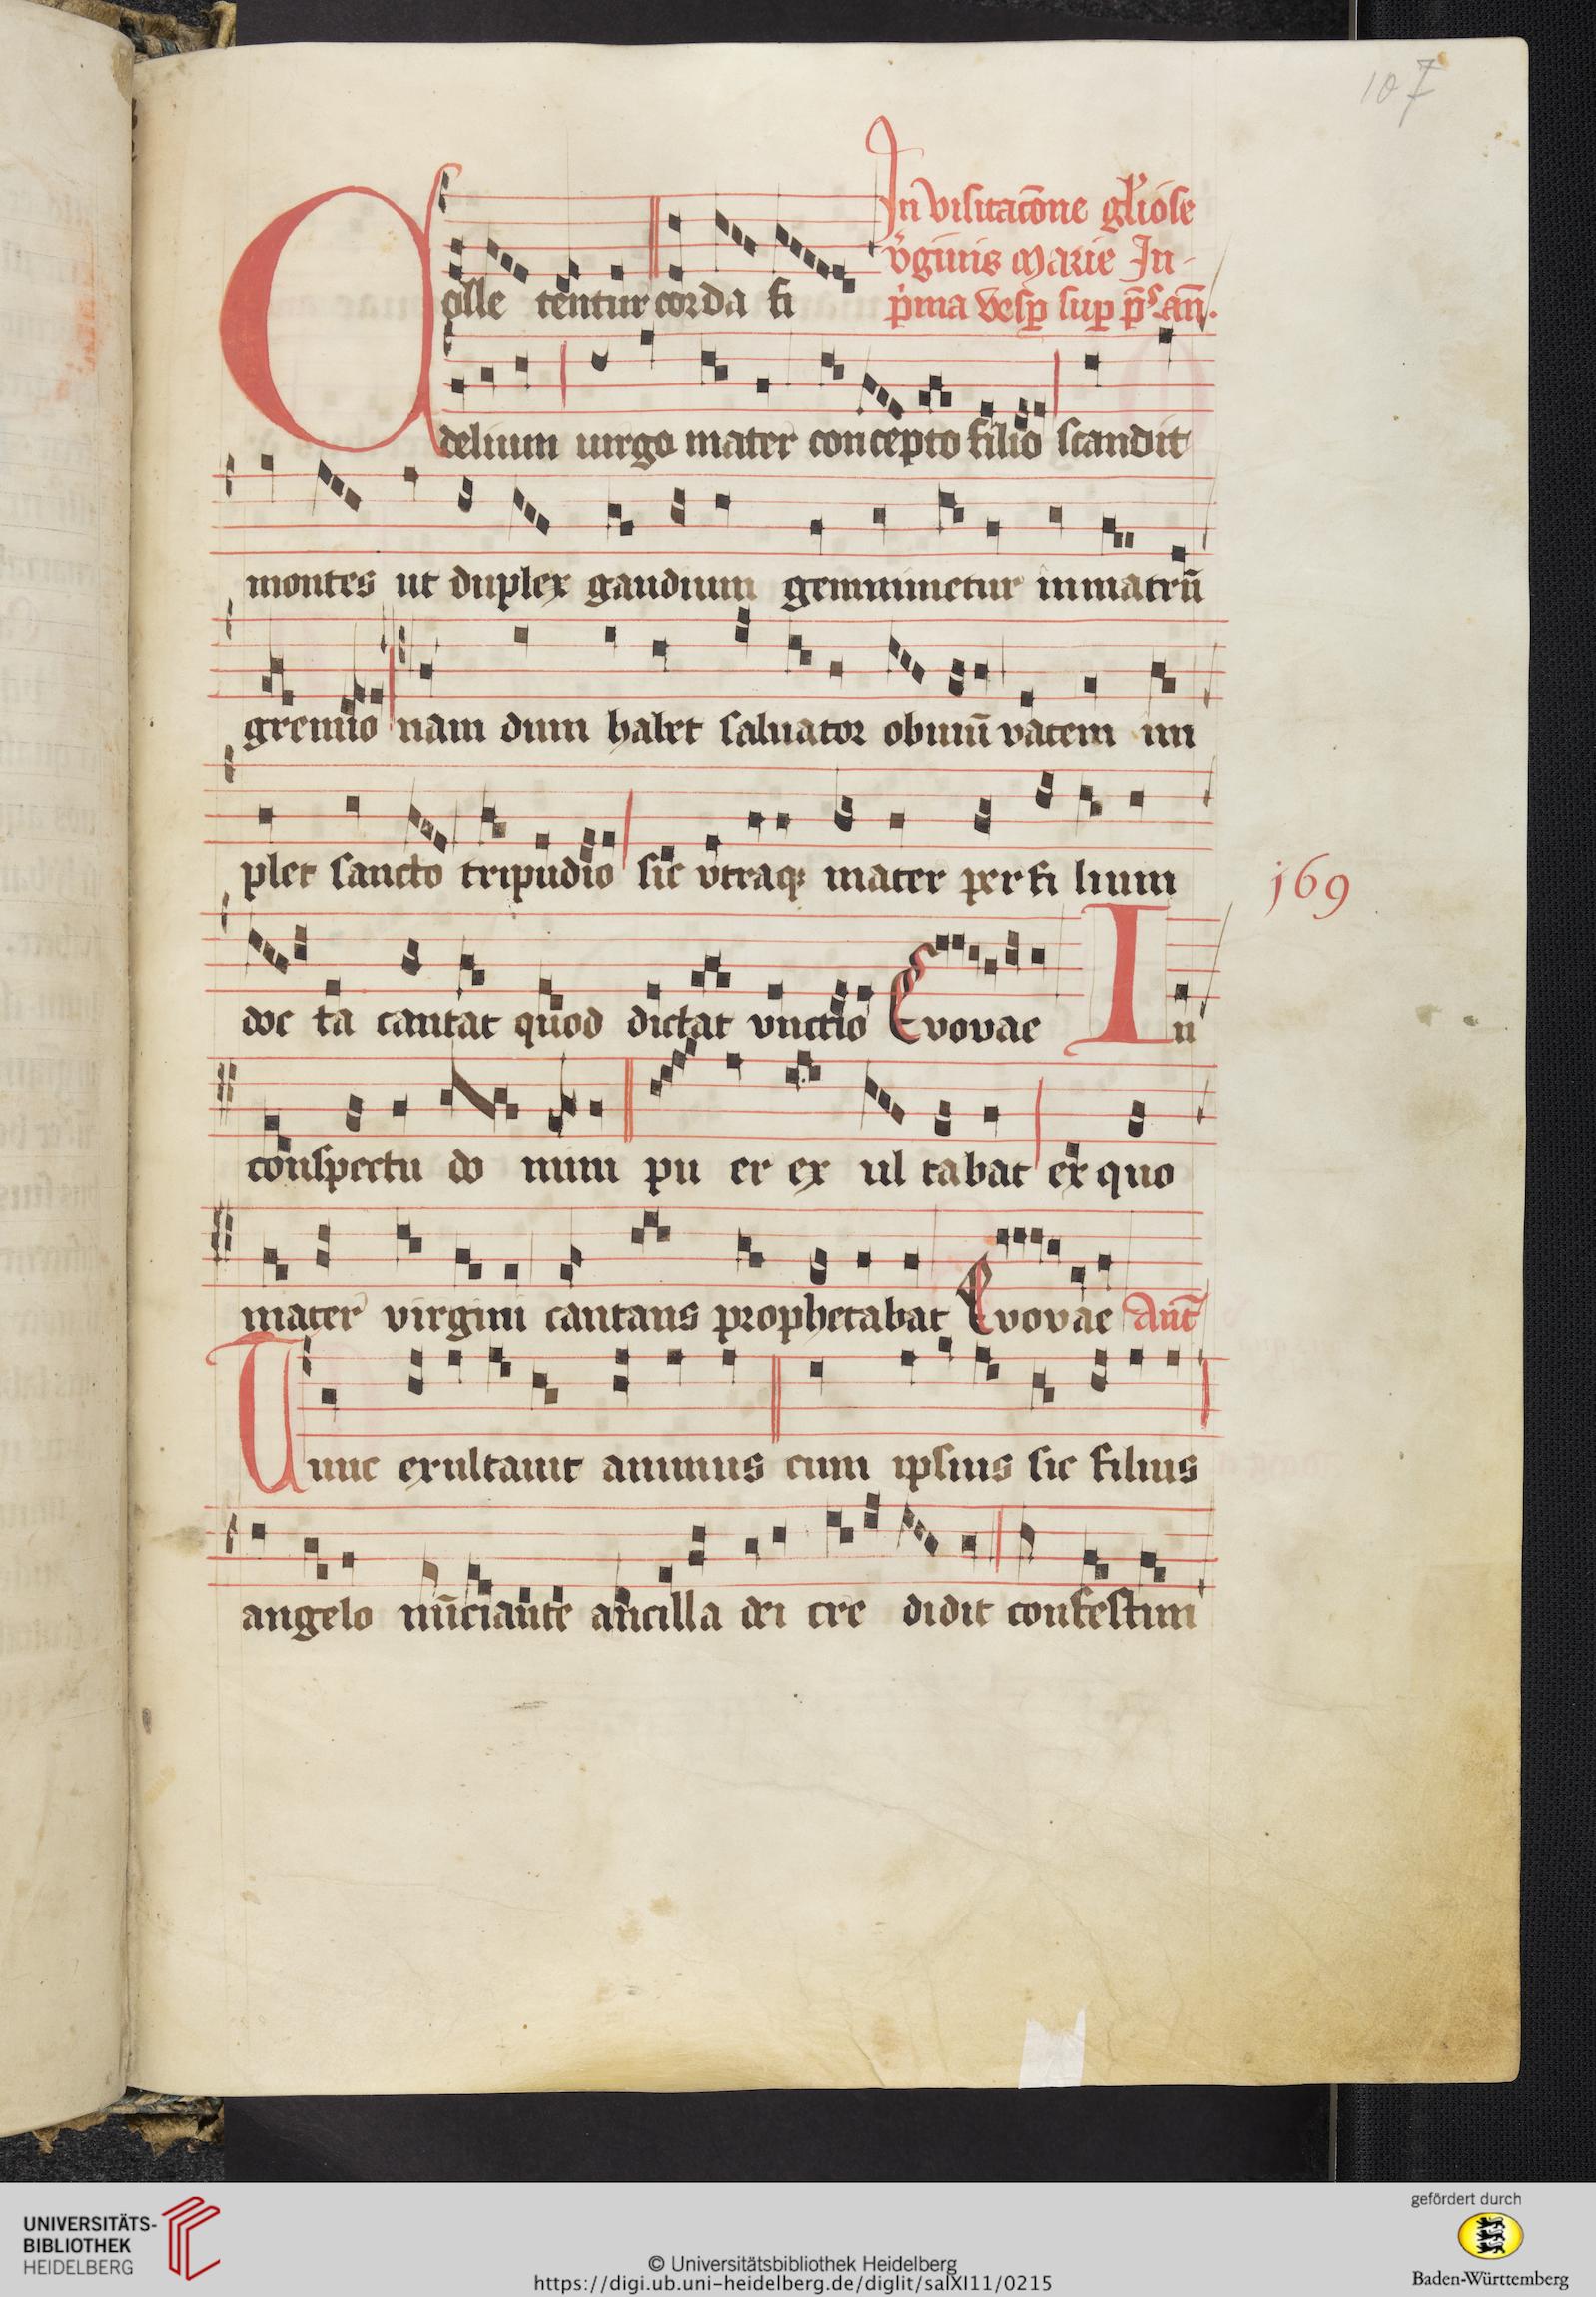 107
In visitac̄one gl'iose
v̓ginis Marie In-
p̓ma vesp̄ sup p̄s. an̄.
Colletentur corda fi
delium uirgo mater concepto filio scandit
montes ut duplex gaudium gemminetur inmatrū
gremio nam dum habet saluator obuiū vatem im
plet sancto tripudio sic vtraq; mater per fi lium
169
doc ta cantat quod dictat vnctio Evovae In
conspectu do mini pu er ex ul tabat ex quo
mater virgini cantans prophetabat Evovae Ant̄
Tunc exultauit animus cum ipsius sic filius
angelo nūciante ancilla dei cre didit confestim
UNIVERSITÄTS-
BIBLIOTHEK
HEIDELBERG
© Universitätsbibliothek Heidelberg
https://digi.ub.uni-heidelberg.de/diglit/salXI11/0215
gefördert durch
Baden-Württemberg